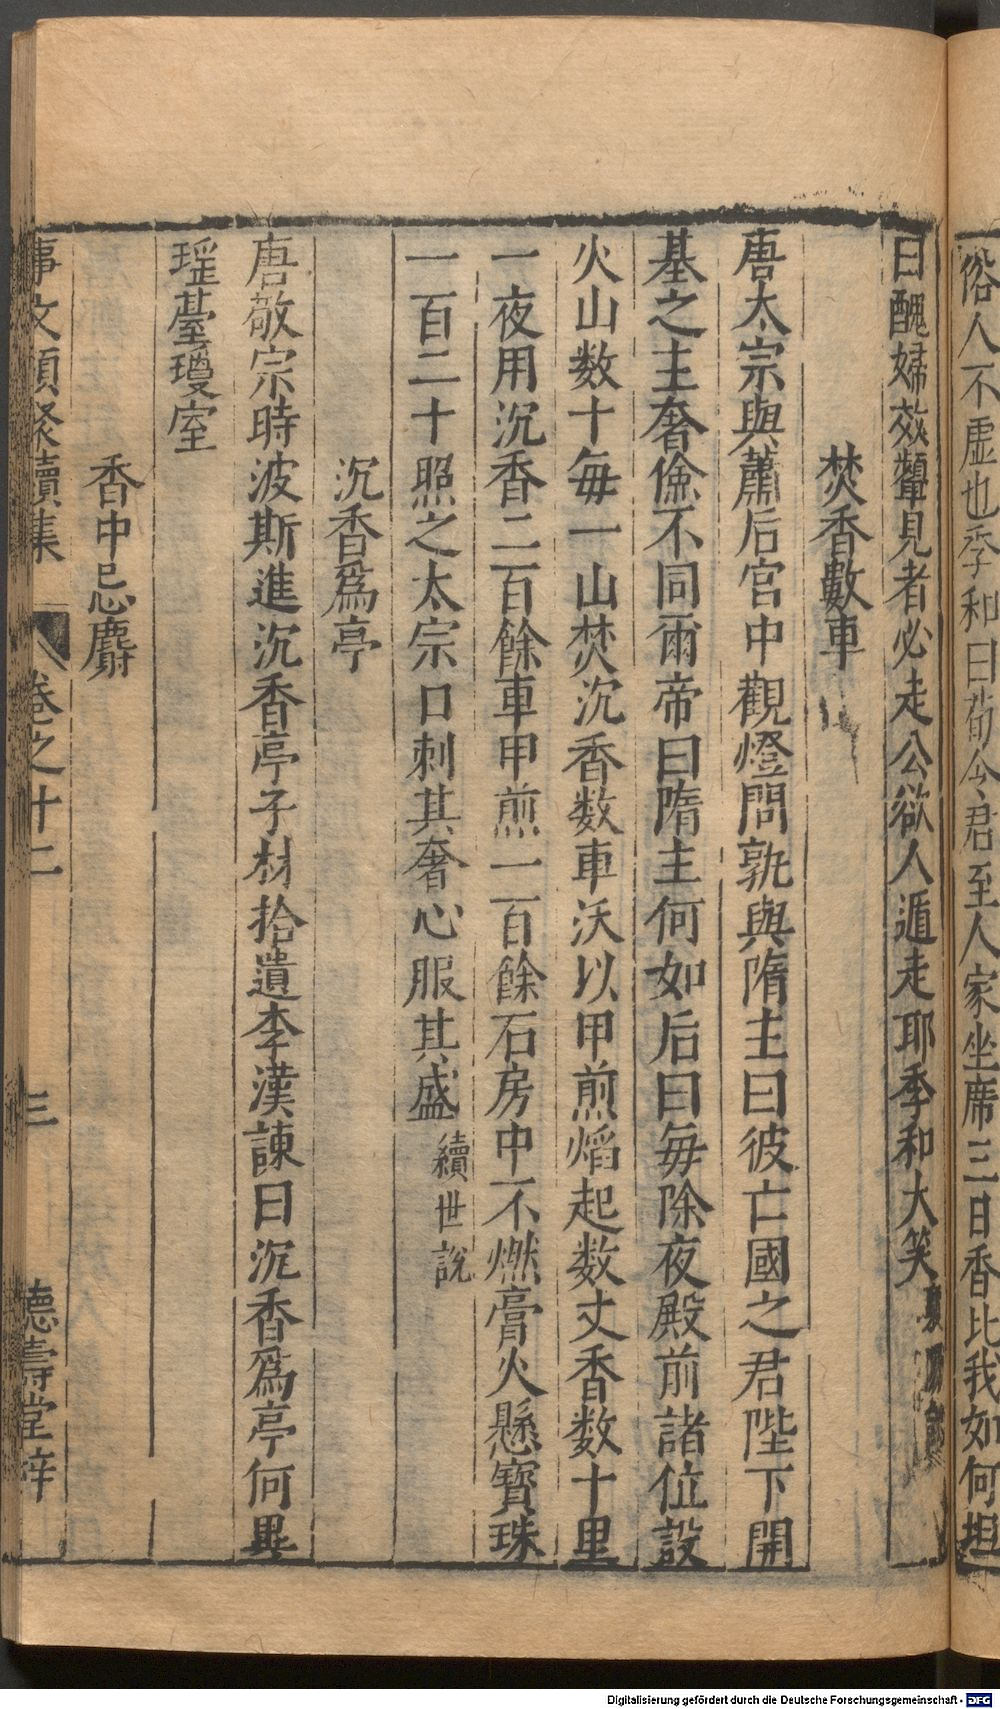 俗人不虛也季和曰荀令君至人家坐席三日香比我如何坦
曰醜婦效顰見者必走公欲人遁走耶季和大笑
焚香數車
唐太宗與蕭后宮中觀燈問孰與隋主曰彼亡國之君陛下開
基之主奢儉不同爾帝曰隋主何如后曰每除夜殿前諸位設
火山数十每一山焚沉香数車沃以甲煎焰起数丈香数十里
一夜用沉香二百餘車甲煎一百餘石房中不燃膏火懸寶珠
一百二十照之太宗口刺其奢心服其盛續世說
沉香爲亭
唐敬宗時波斯進沉香亭子材拾遺李漢諫曰沉香爲亭何異
瑶䑓瓊室
香中忌麝
事文類聚續集 卷之十二 三 德壽堂梓
Digitalisierung gefördert durch die Deutsche Forschungsgemeinschaft - DFG